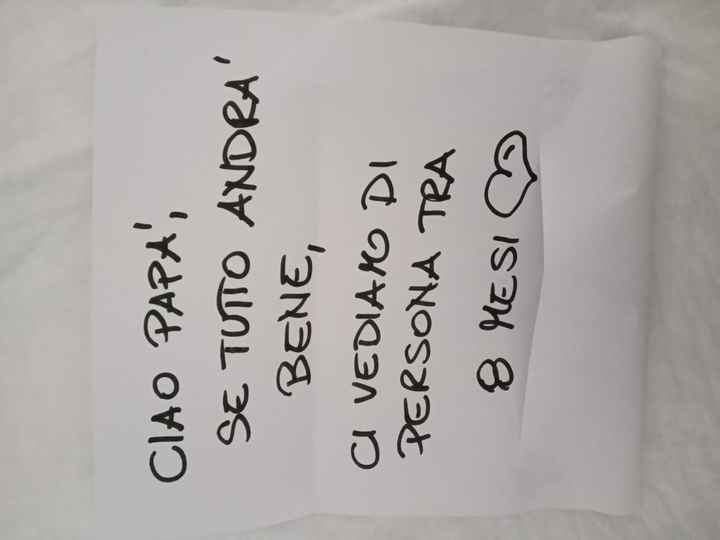 CIAO PAPA',
SE TUTTO ANDRA'
BENE,
CI VEDIAMO DI
PERSONA TRA
8 MESI